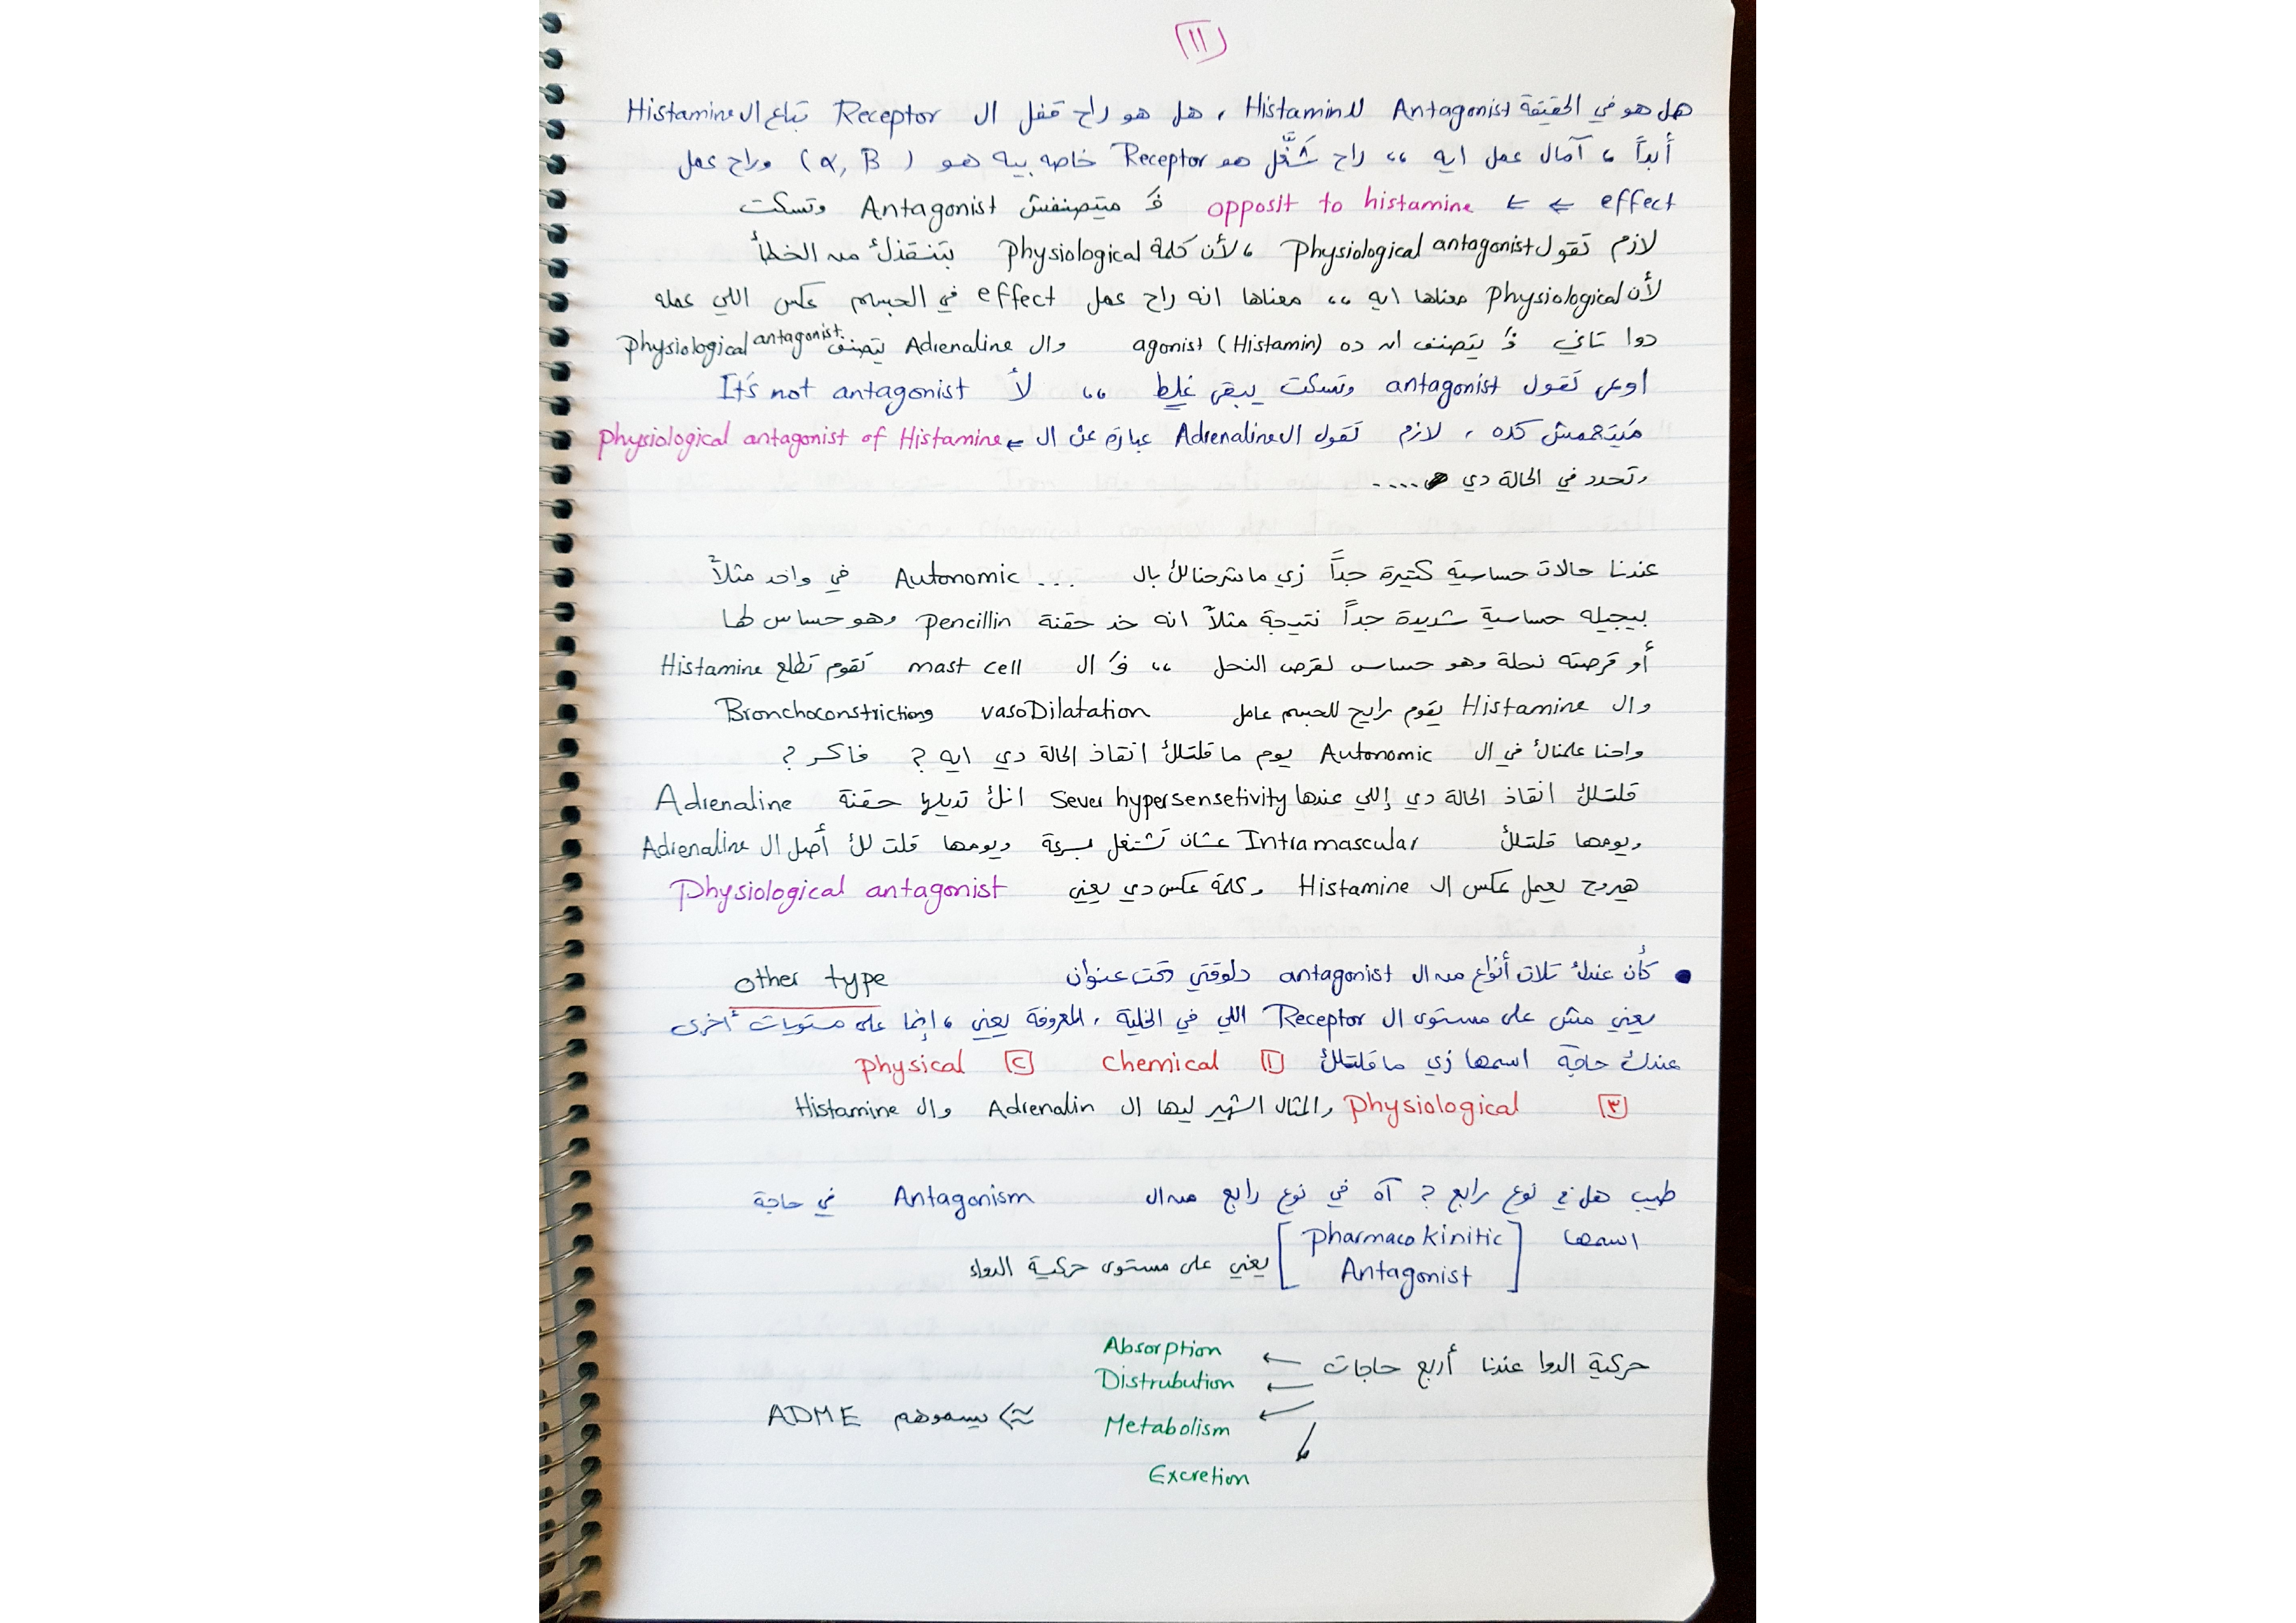 ١١
هل هو في الحقيقة Antagonist للـ Histamin ، هل هو راح قفل ال Receptor بتاع ال Histamine
أبداً ، آمال عمل ايه ،، راح شغَّل هو Receptor خاصه بيه هو ( α, β ) وراح عمل
effect ← ← opposit to histamine فَـ متصنفش Antagonist وتسكت
لازم تقول Physiological antagonist ، لأن كلمة Physiological بتنقذك من الخطأ
لأن Physiological معناها ايه ،، معناها انه راح عمل effect في الجسم عكس اللي عمله
دوا تاني فَـ يتصنف ان ده agonist (Histamin) وال Adrenaline يتصنف Physiological antagonist
اوعى تقول antagonist وتسكت يبقى غلط ،، لأ It's not antagonist
كده ، لازم تقول ال Adrenaline عبارة عن ال ← physiological antagonist of Histamine
وتحدد في الحالة دي ....
عندنا حالات حساسية كتيرة جداً زي ما شرحنالك بال ... Autonomic في واحد مثلاً
بيجيله حساسية شديدة جداً نتيجة مثلاً انه خد حقنة Pencillin وهو حساس لها
أو قرصته نحلة وهو حساس لقرص النحل ،، فَـ ال mast cell تقوم تطلع Histamine
وال Histamine يقوم رايح للجسم عامل vasoDilatation و Bronchoconstriction
واحنا علمناك في ال Autonomic يوم ما قلتلك انقاذ الحالة دي ايه ? فاكر ?
قلتلك انقاذ الحالة دي إللي عندها Sever hypersensetivity انك تديلها حقنة Adrenaline
ويومها قلتلك Intramascular عشان تشتغل بسرعة ويومها قلت لك أصل ال Adrenaline
هيروح يعمل عكس ال Histamine وكلمة عكس دي يعني Physiological antagonist
• كأن عندك تلات أنواع من ال antagonist دلوقتي تحت عنوان other type
يعني مش على مستوى ال Receptor اللي في الخلية ، المعروفة يعني ، إنما على مستويات أخرى
عندك حاجة اسمها زي ما قلتلك ١ Chemical ٢ physical
٣ Physiological والمثال الشهير ليها ال Adrenalin وال Histamine
طيب هل في نوع رابع ? آه في نوع رابع من ال Antagonism في حاجة
اسمها [ Pharmacokinitic
Antagonist ] يعني على مستوى حركية الدواء
حركية الدوا عندنا أربع حاجات ← Absorption
← Distrubution
← Metabolism
Excretion
بيسموهم ADME